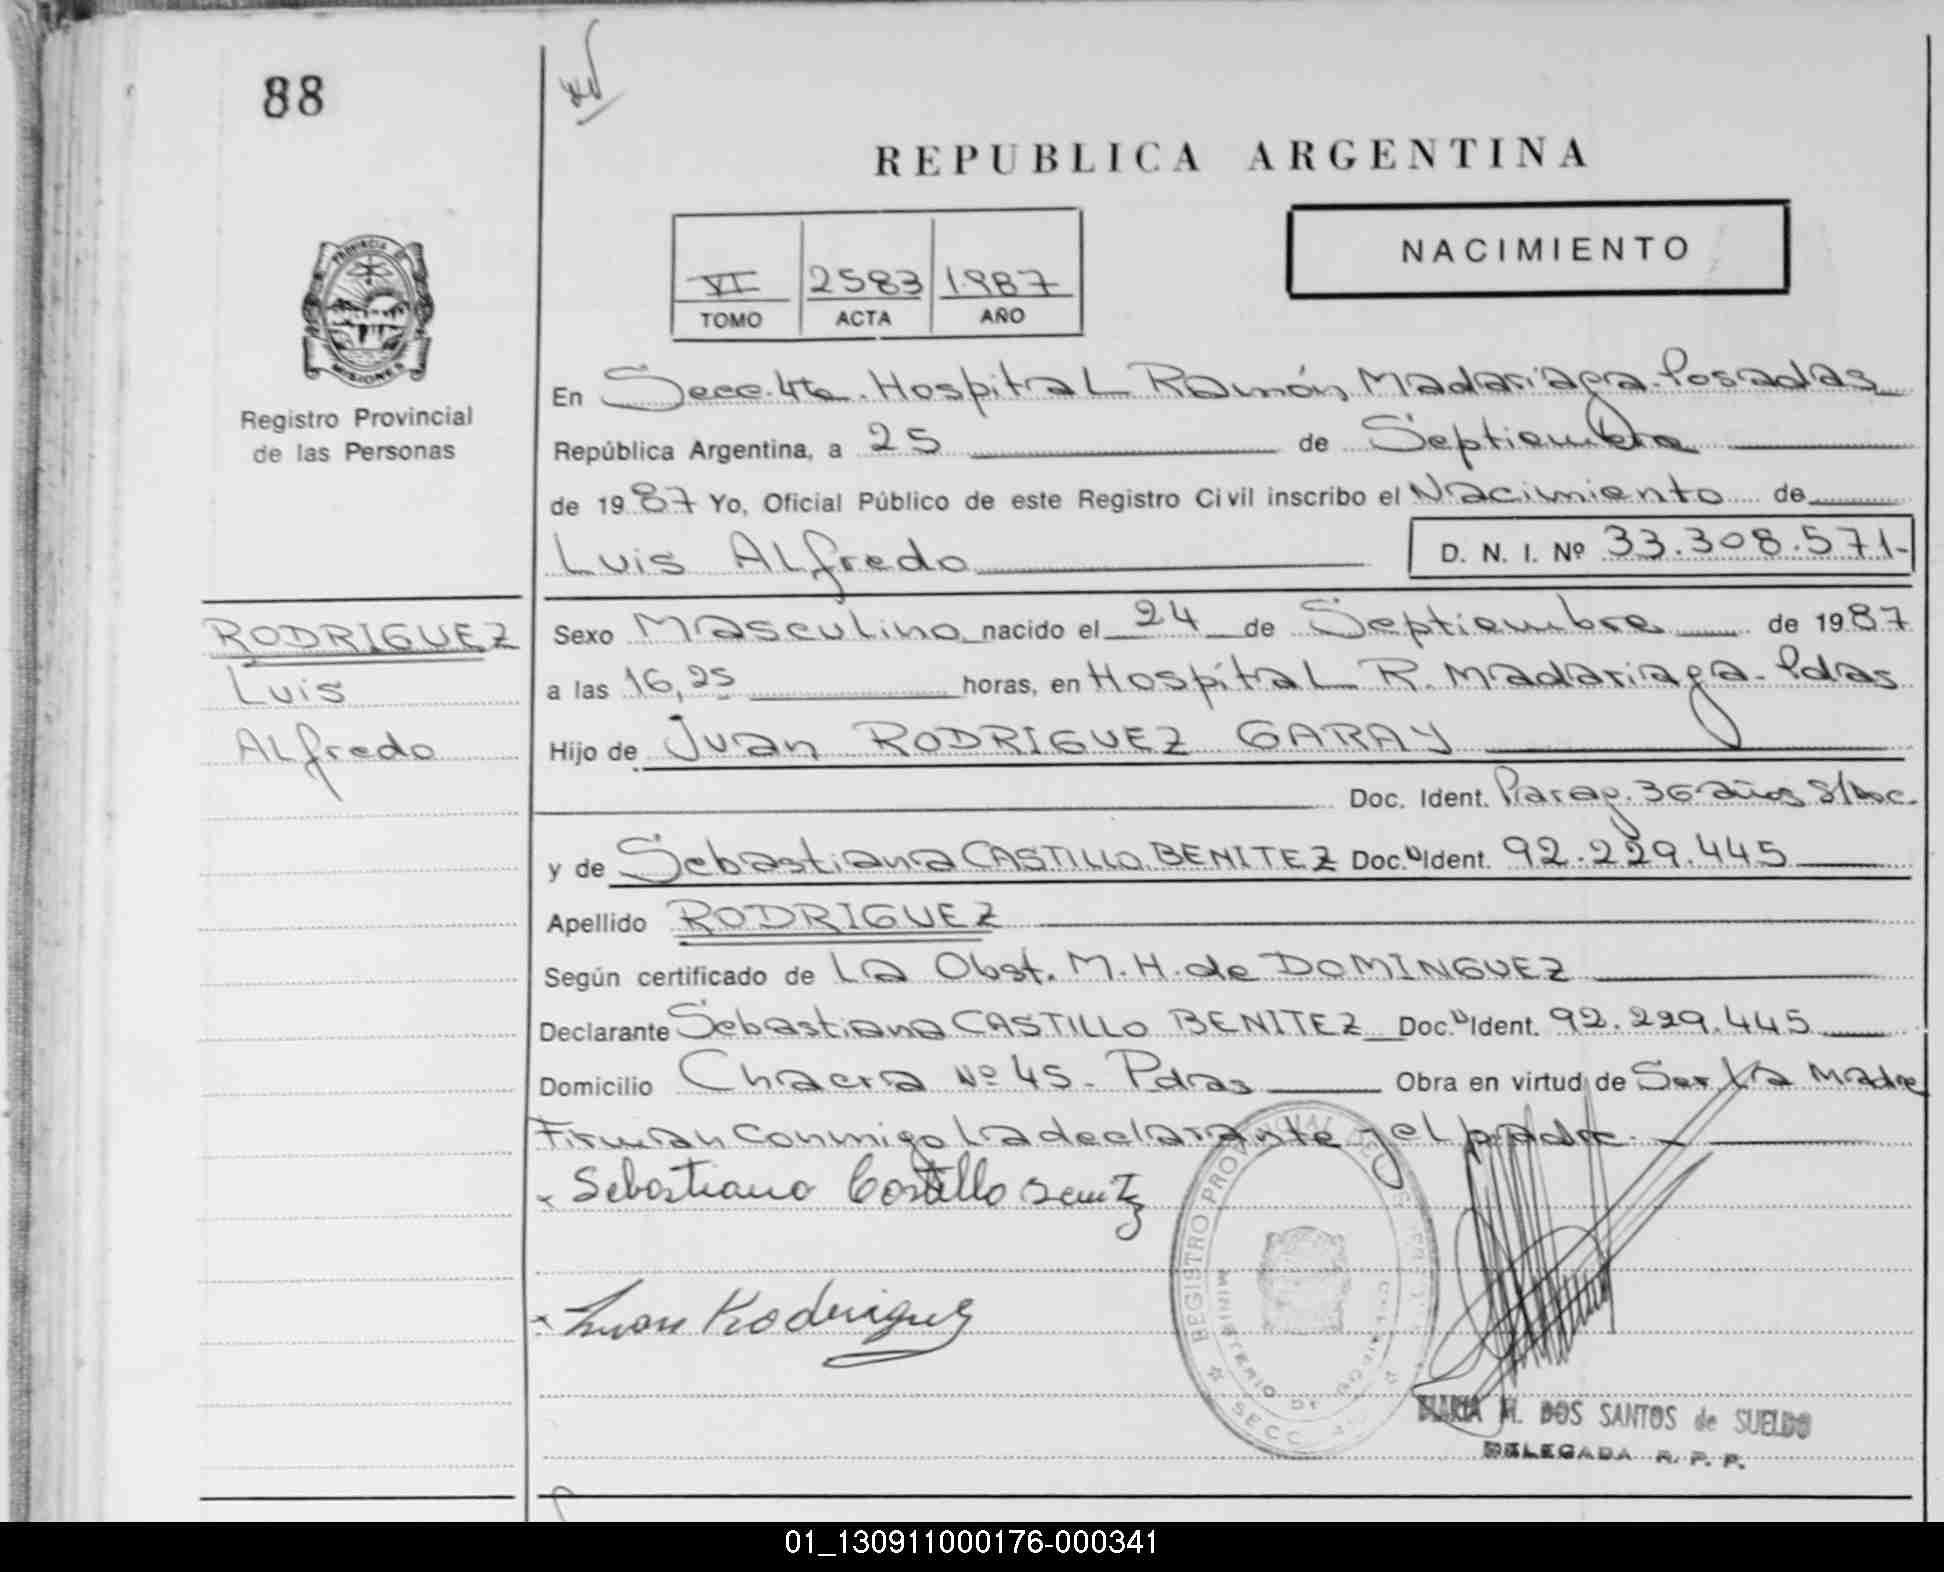 88
REPUBLICA ARGENTINA
NACIMIENTO
VI 2583 1987
TOMO ACTA AÑO
PROVINCIA DE
MISIONES
Registro Provincial
de las Personas
En Secc. 4ta. Hospital Ramón Madariaga-Posadas
República Argentina, a 25 de Septiembre
de 1987 Yo, Oficial Público de este Registro Civil inscribo el Nacimiento de
Luis Alfredo D. N. I. Nº 33.308.571-
RODRIGUEZ
Luis
Alfredo
Sexo Masculino nacido el 24 de Septiembre de 1987
a las 16,25 horas, en Hospital R. Madariaga-Pdas
Hijo de Juan RODRIGUEZ GARAY
Doc. Ident. Parag. 36 años S/Doc.
y de Sebastiana CASTILLO BENITEZ Doc. Ident. 92.229.445
Apellido RODRIGUEZ
Según certificado de La Obst. M. H. de DOMINGUEZ
Declarante Sebastiana CASTILLO BENITEZ Doc. Ident. 92.229.445
Domicilio Chacra Nº 45- Pdas Obra en virtud de Ser La Madre
Firman conmigo La declarante y el padre.-
Sebastiana Castillo Benitez
Juan Rodriguez
REGISTRO PROVINCIAL DE LAS
MINISTERIO DE GOBIERNO
SECC
MARIA M. DOS SANTOS de SUELDO
DELEGADA R. P. P.
01_130911000176-000341